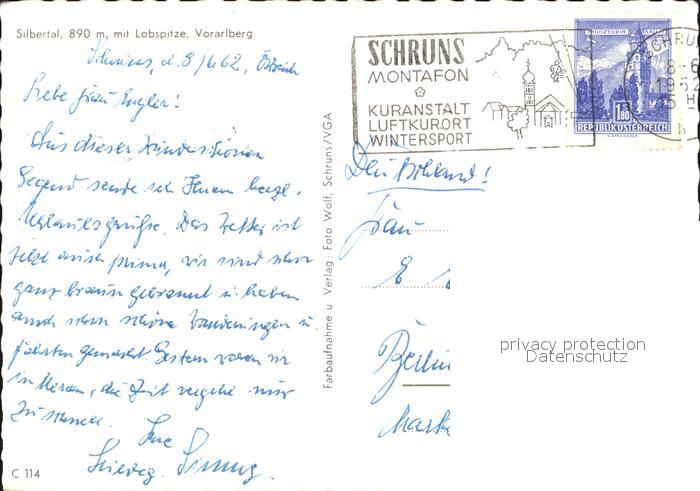 Silbertal, 890 m, mit Lobspitze, Vorarlberg
Schruns, d. 8/6 62, Östreich
Liebe Frau Engler!
Aus dieser
Gegend sende ich Ihnen herzl.
Urlaubsgrüße. Das Wetter ist
jetzt auch prima, wir sind schon
ganz braun gebrannt u. haben
auch schon schöne Wanderungen u.
Fahrten gemacht. Gestern waren wir
in Meran, die Zeit vergeht nur
zu
Ihre
C 114
Farbaufnahme u Verlag: Foto Wolf, Schruns/VGA
SCHRUNS
MONTAFON
KURANSTALT
LUFTKURORT
WINTERSPORT
MÜNZTURM HALL
1.80
REPUBLIK ÖSTERREICH
SCHRUNS
8-6
1962
15 H
Deutschland!
Frau
E.
Berlin
Mark
privacy protection
Datenschutz